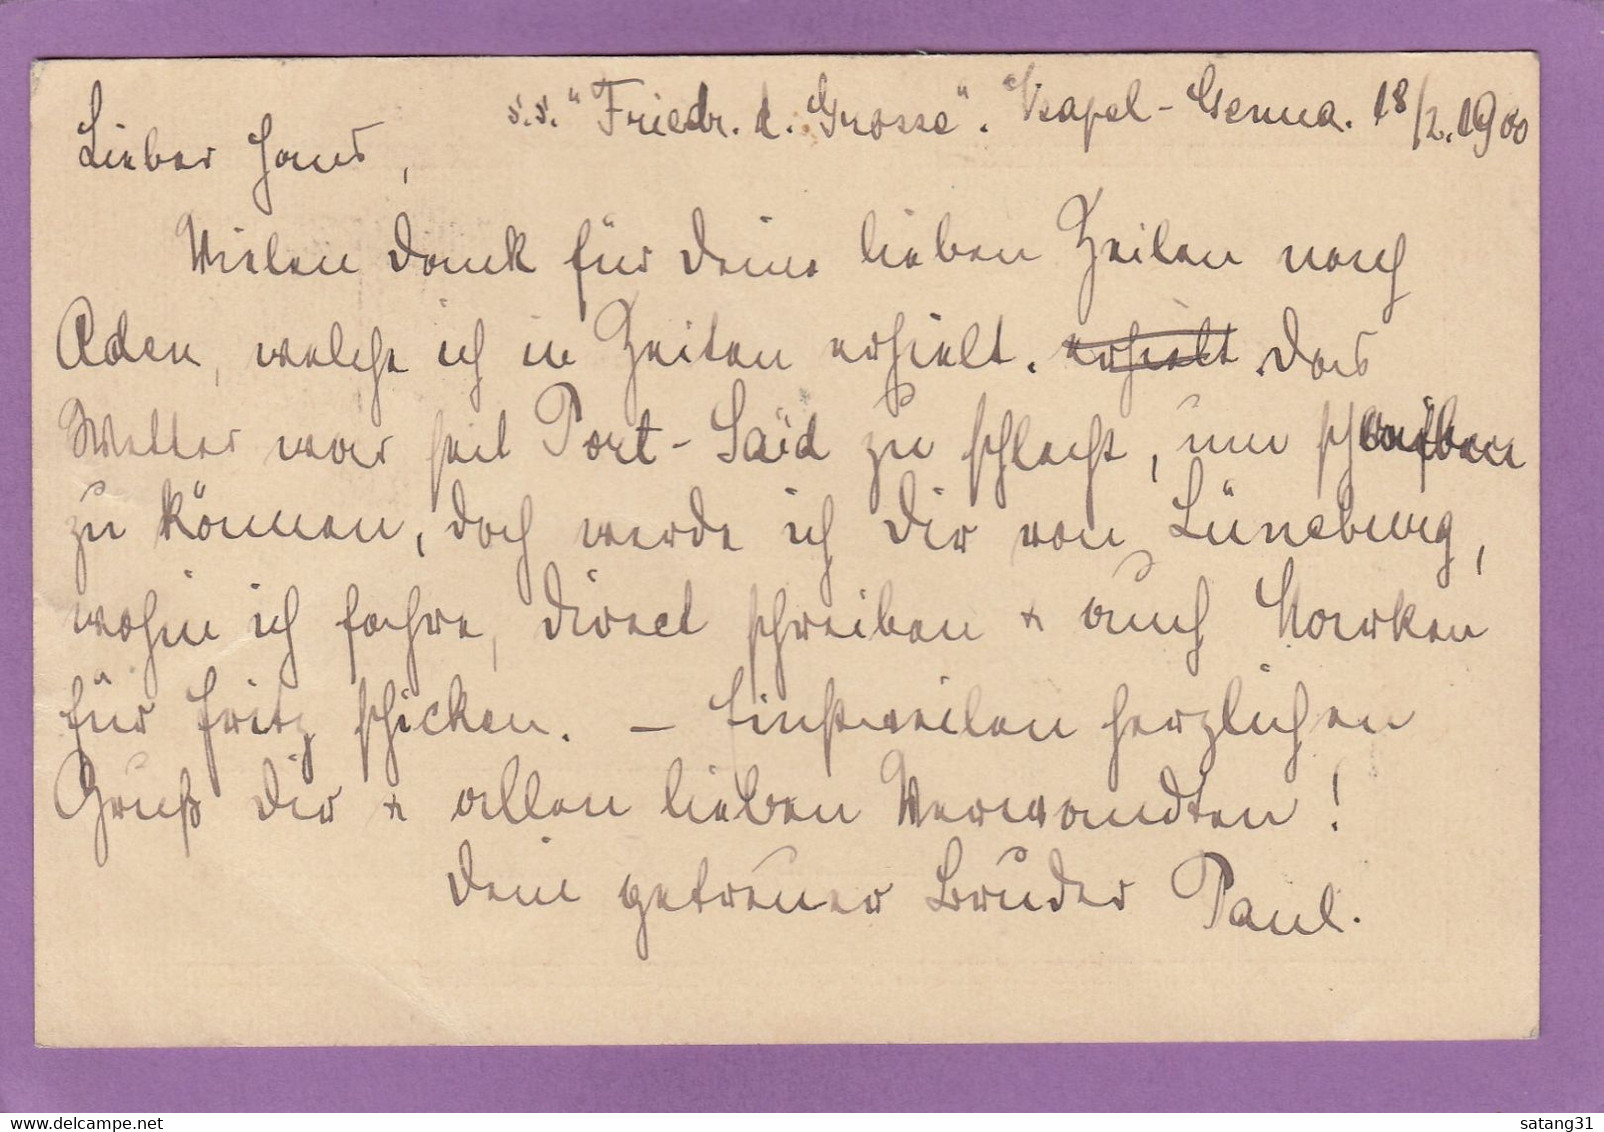 S.S. "Friedr. d. Grosse". Neapel - Genua. 18/2.1900
Lieber Hans,
Vielen Dank für Deine lieben Zeilen nach
Aden, welche ich in Zeiten erhielt. erhielt. Das
Wetter war seit Port-Saïd zu schlecht, um schreiben
zu können, doch werde ich Dir von Lüneburg,
wohin ich fahre, direct schreiben & auch Marken
für Fritz schicken. – Einstweilen herzlichen
Gruß Dir & allen lieben Verwandten!
Dein getreuer Bruder Paul.
satang31